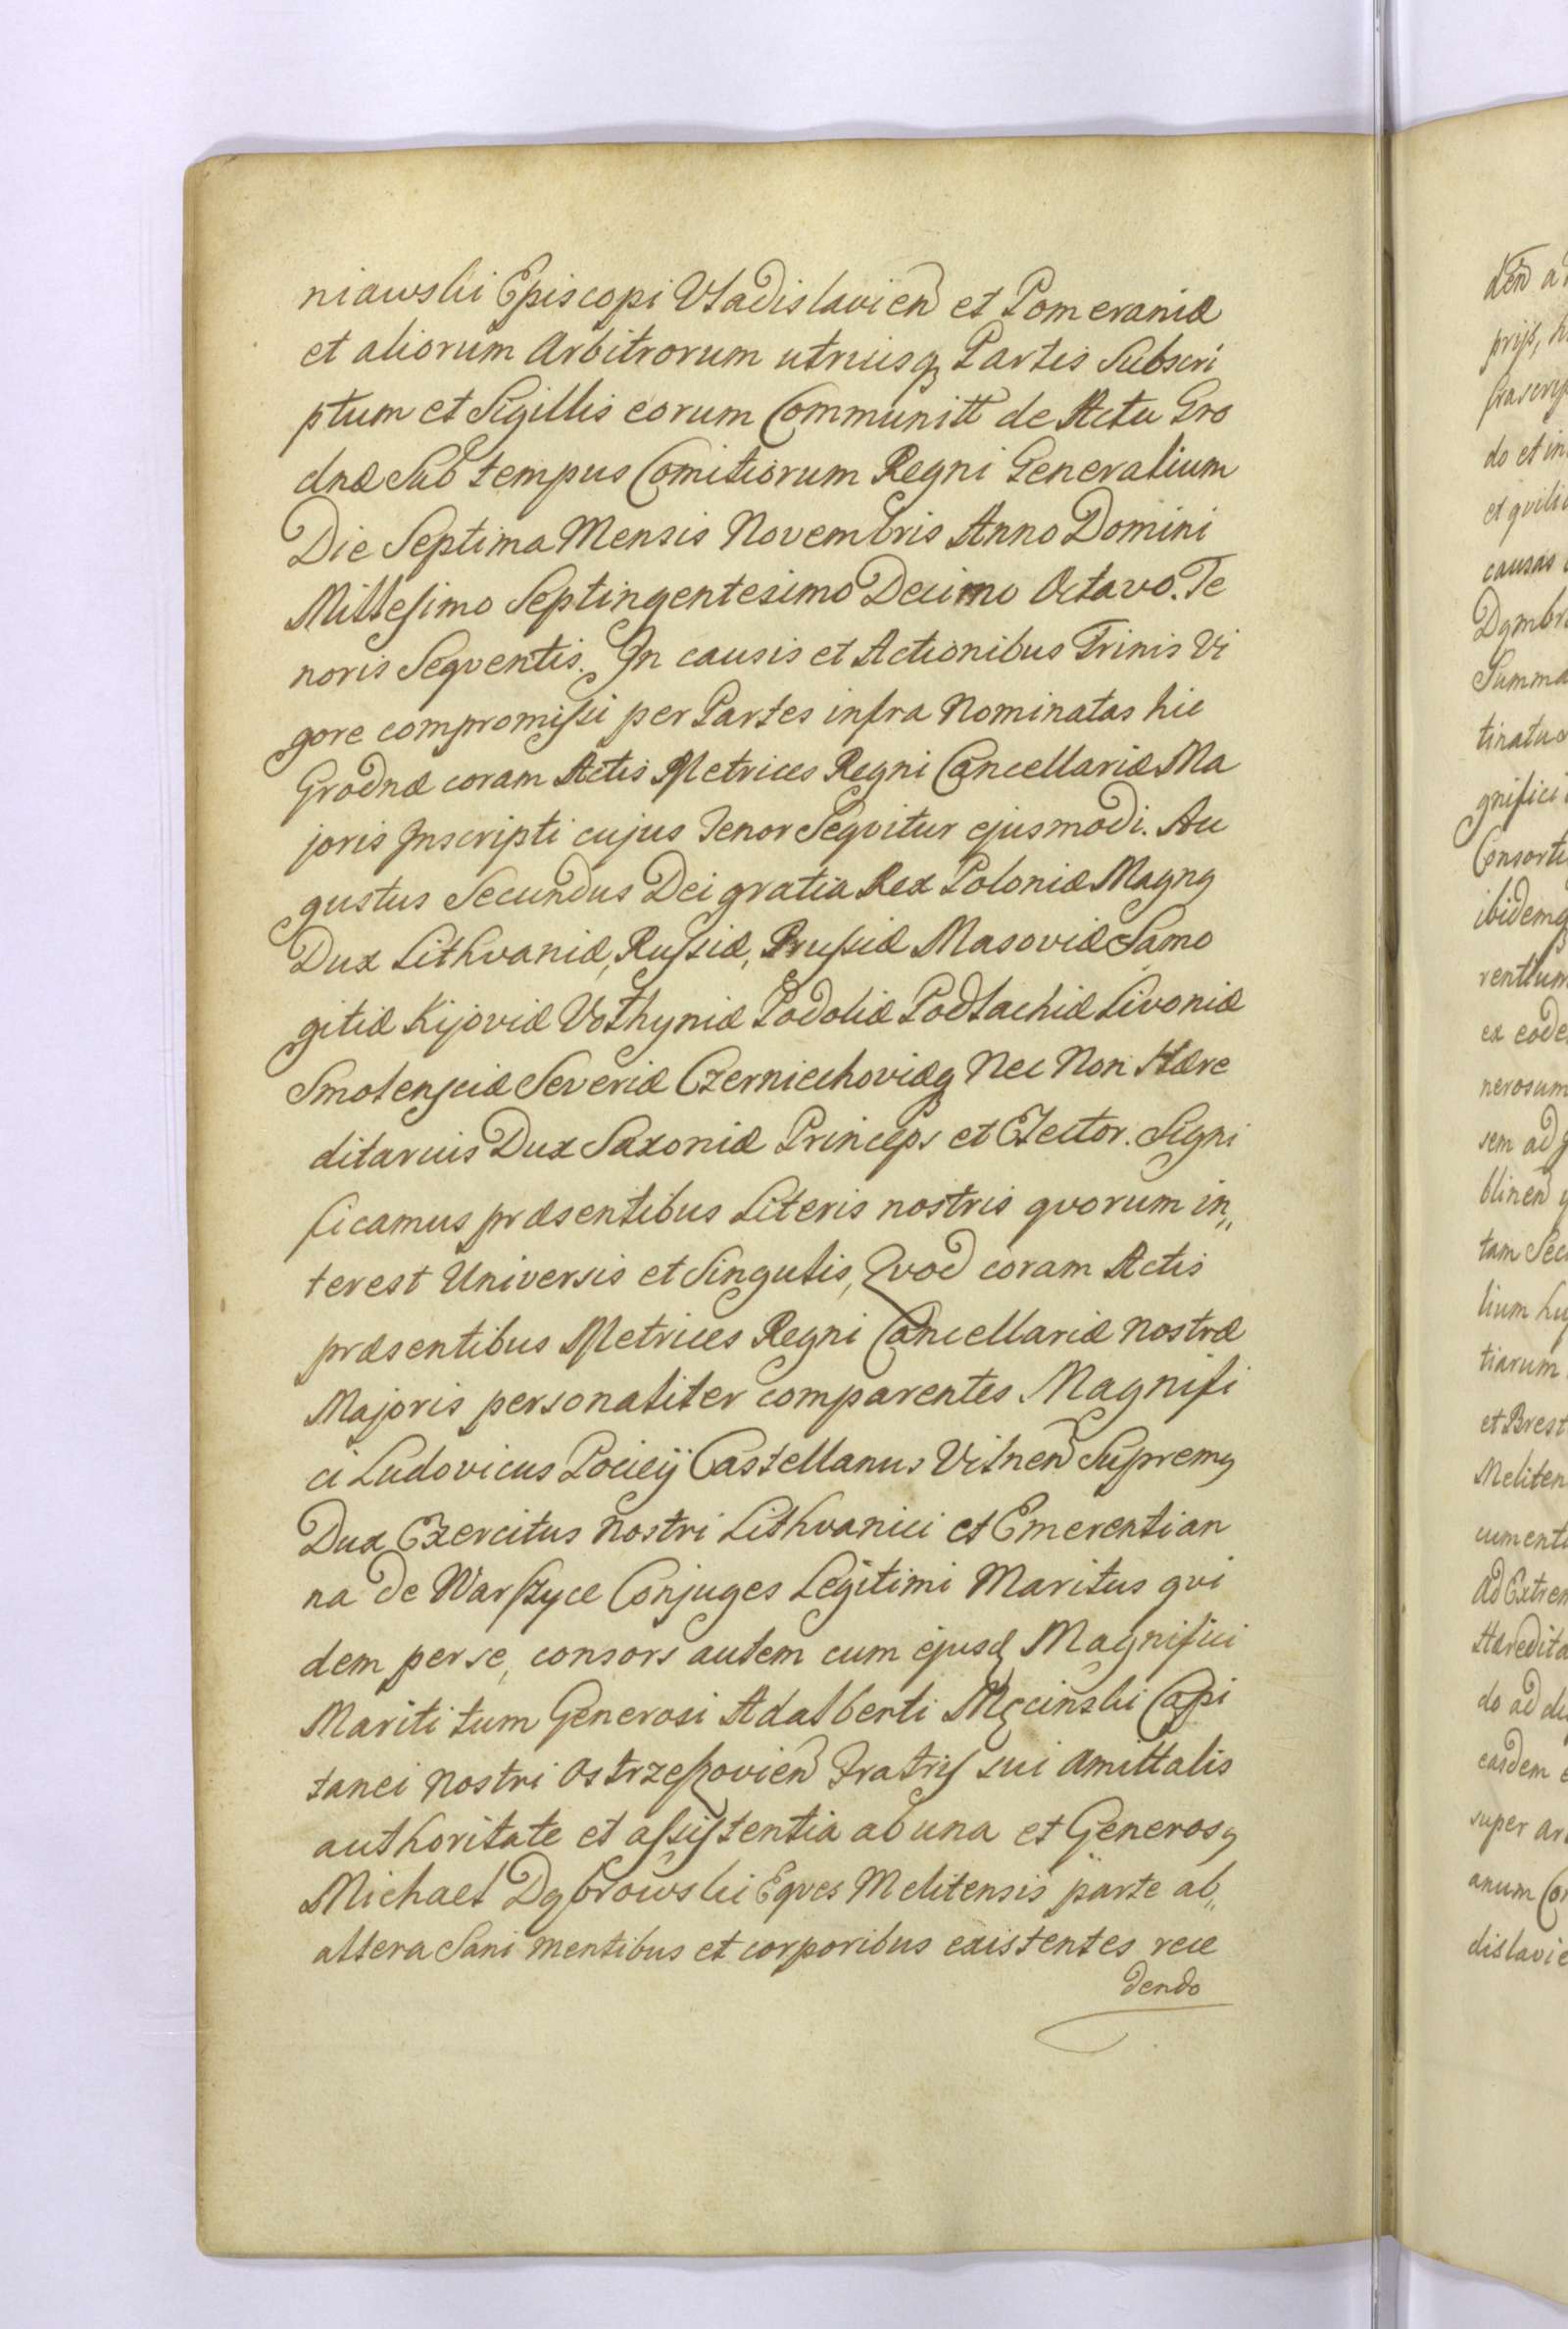 niawski Episcopi Vladislavien et Pomeraniæ
et aliorum Arbitrorum utriusq Partis Subscri
ptum et Sigillis eorum Communitt de Actu Gro
dnæ Sub tempus Comitiorum Regni Generalium
Die Septima Mensis Novembris Anno Domini
Millesimo Septingentesimo Decimo Octavo. Te
noris Seqventis. In causis et Actionibus Trinis Vi
gore compromissi per Partes infra Nominatas hic
Grodnæ coram Actis Metrices Regni Cancellariæ Ma
joris Inscripti cujus Tenor Seqvitur ejusmodi. Au
gustus Secundus Dei gratia Rex Poloniæ Magnq
Dux Lithvaniæ, Russiæ, Prussiæ Masoviæ Samo
gitiæ Kijoviæ Volhyniæ Podoliæ Podlachiæ Livoniæ
Smolensciæ Severiæ Czerniechoviæq Nec Non Hære
ditarius Dux Saxoniæ Princeps et Elector. Signi
ficamus præsentibus Literis nostris qvorum in„
terest Universis et Singulis, Qvod coram Actis
præsentibus Metrices Regni Cancellariæ nostræ
Majoris personaliter comparentes Magnifi
ci Ludovicus Pociey Castellanus Vilnen Supremq
Dux Exercitus nostri Lithvanici et Emerentian
na de Warszyce Conjuges Legitimi Maritus qvi
dem per se, consors autem cum ejusd Magnifici
Mariti tum Generosi Adalberti Męcinski Capi
tanei nostri Ostrzeszovien Fratris sui Amittalis
authoritate et assistentia ab una et Generosq
Michael Dąbrowski Eqves Melitensis parte ab„
altera Sani mentibus et corporibus existentes rece
dendo